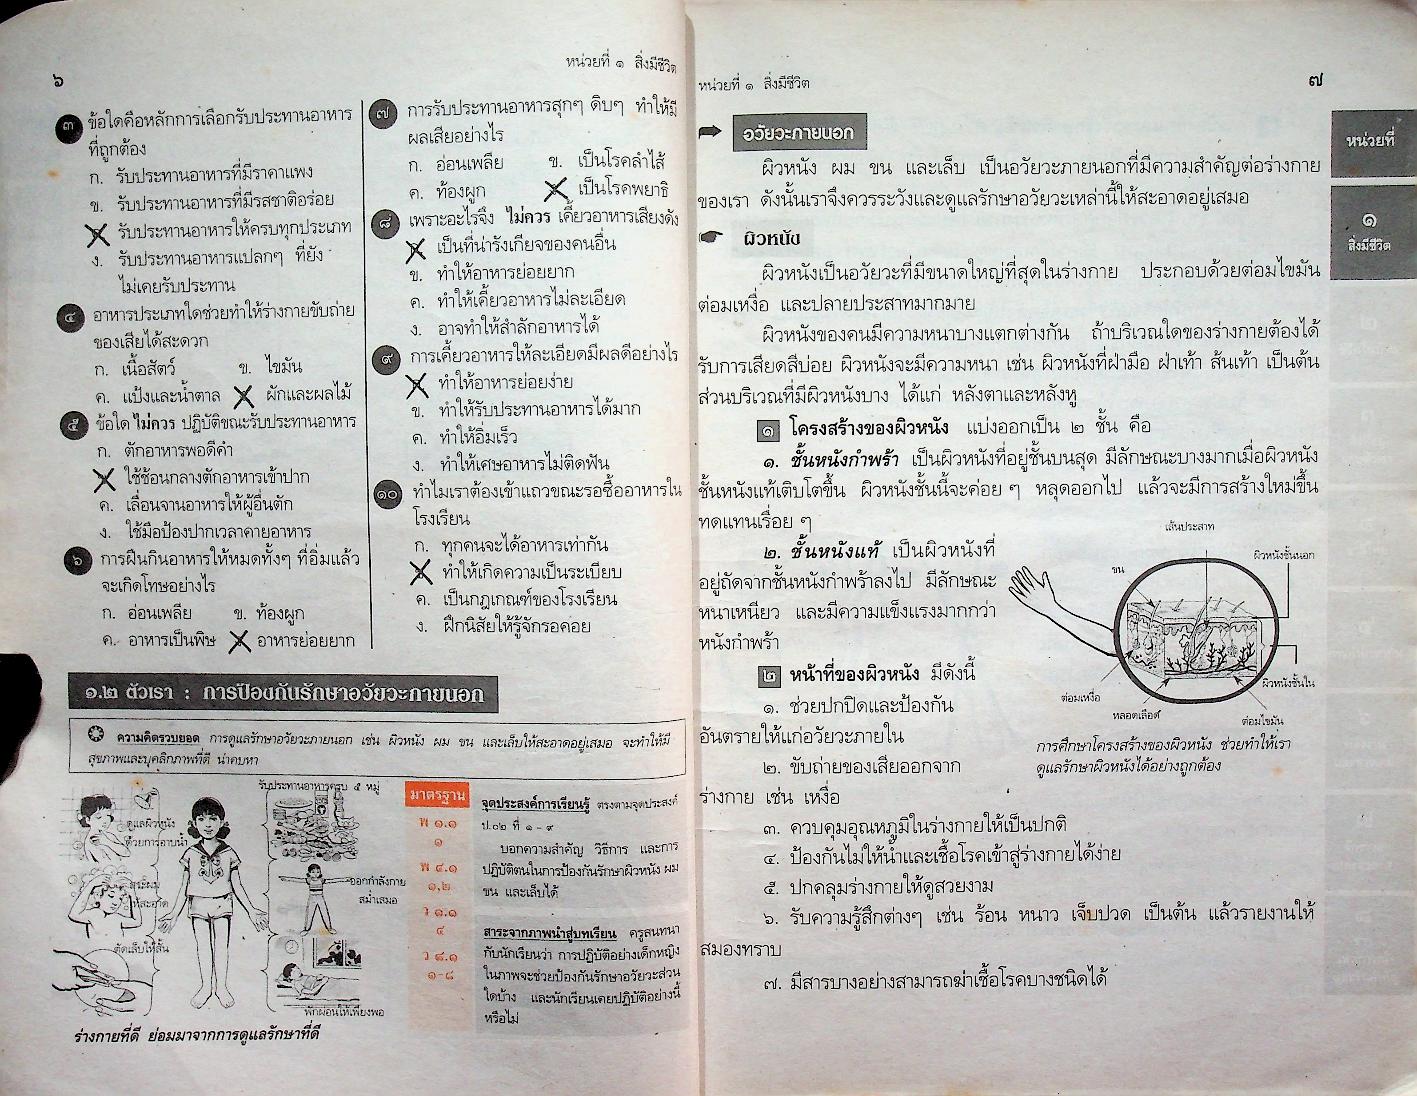 ๖
หน่วยที่ ๑ สิ่งมีชีวิต
๓ ข้อใดคือหลักการเลือกรับประทานอาหาร
ที่ถูกต้อง
ก. รับประทานอาหารที่มีราคาแพง
ข. รับประทานอาหารที่มีรสชาติอร่อย
รับประทานอาหารให้ครบทุกประเภท
ง. รับประทานอาหารแปลกๆ ที่ยัง
ไม่เคยรับประทาน
๔ อาหารประเภทใดช่วยทำให้ร่างกายขับถ่าย
ของเสียได้สะดวก
ก. เนื้อสัตว์ ข. ไขมัน
ค. แป้งและน้ำตาล ผักและผลไม้
๕ ข้อใด ไม่ควร ปฏิบัติขณะรับประทานอาหาร
ก. ตักอาหารพอดีคำ
ใช้ช้อนกลางตักอาหารเข้าปาก
ค. เลื่อนจานอาหารให้ผู้อื่นตัก
ง. ใช้มือป้องปากเวลาคายอาหาร
๖ การฝืนกินอาหารให้หมดทั้งๆ ที่อิ่มแล้ว
จะเกิดโทษอย่างไร
ก. อ่อนเพลีย ข. ท้องผูก
ค. อาหารเป็นพิษ อาหารย่อยยาก
๗ การรับประทานอาหารสุกๆ ดิบๆ ทำให้มี
ผลเสียอย่างไร
ก. อ่อนเพลีย ข. เป็นโรคลำไส้
ค. ท้องผูก เป็นโรคพยาธิ
๘ เพราะอะไรจึง ไม่ควร เคี้ยวอาหารเสียงดัง
เป็นที่น่ารังเกียจของคนอื่น
ข. ทำให้อาหารย่อยยาก
ค. ทำให้เคี้ยวอาหารไม่ละเอียด
ง. อาจทำให้สำลักอาหารได้
๙ การเคี้ยวอาหารให้ละเอียดมีผลดีอย่างไร
ทำให้อาหารย่อยง่าย
ข. ทำให้รับประทานอาหารได้มาก
ค. ทำให้อิ่มเร็ว
ง. ทำให้เศษอาหารไม่ติดฟัน
๑๐ ทำไมเราต้องเข้าแถวขณะรอซื้ออาหารใน
โรงเรียน
ก. ทุกคนจะได้อาหารเท่ากัน
ทำให้เกิดความเป็นระเบียบ
ค. เป็นกฎเกณฑ์ของโรงเรียน
ง. ฝึกนิสัยให้รู้จักรอคอย
๑.๒ ตัวเรา : การป้องกันรักษาอวัยวะภายนอก
ความคิดรวบยอด การดูแลรักษาอวัยวะภายนอก เช่น ผิวหนัง ผม ขน และเล็บให้สะอาดอยู่เสมอ จะทำให้มี
สุขภาพและบุคลิกภาพที่ดี น่าคบหา
ดูแลผิวหนัง
ด้วยการอาบน้ำ
สระผม
ให้สะอาด
ตัดเล็บให้สั้น
รับประทานอาหารครบ ๕ หมู่
ออกกำลังกาย
สม่ำเสมอ
พักผ่อนให้เพียงพอ
ร่างกายที่ดี ย่อมมาจากการดูแลรักษาที่ดี
มาตรฐาน
พ ๑.๑
๑
พ ๔.๑
๑,๒
ว ๑.๑
๔
ว ๘.๑
๑-๘
จุดประสงค์การเรียนรู้ ตรงตามจุดประสงค์
ป.๐๒ ที่ ๑ - ๙
บอกความสำคัญ วิธีการ และการ
ปฏิบัติตนในการป้องกันรักษาผิวหนัง ผม
ขน และเล็บได้
สาระจากภาพนำสู่บทเรียน ครูสนทนา
กับนักเรียนว่า การปฏิบัติอย่างเด็กหญิง
ในภาพจะช่วยป้องกันรักษาอวัยวะส่วน
ใดบ้าง และนักเรียนเคยปฏิบัติอย่างนี้
หรือไม่
หน่วยที่ ๑ สิ่งมีชีวิต
๗
หน่วยที่
๑
สิ่งมีชีวิต
อวัยวะภายนอก
ผิวหนัง ผม ขน และเล็บ เป็นอวัยวะภายนอกที่มีความสำคัญต่อร่างกาย
ของเรา ดังนั้นเราจึงควรระวังและดูแลรักษาอวัยวะเหล่านี้ให้สะอาดอยู่เสมอ
ผิวหนัง
ผิวหนังเป็นอวัยวะที่มีขนาดใหญ่ที่สุดในร่างกาย ประกอบด้วยต่อมไขมัน
ต่อมเหงื่อ และปลายประสาทมากมาย
ผิวหนังของคนมีความหนาบางแตกต่างกัน ถ้าบริเวณใดของร่างกายต้องได้
รับการเสียดสีบ่อย ผิวหนังจะมีความหนา เช่น ผิวหนังที่ฝ่ามือ ฝ่าเท้า ส้นเท้า เป็นต้น
ส่วนบริเวณที่มีผิวหนังบาง ได้แก่ หลังตาและหลังหู
๑ โครงสร้างของผิวหนัง แบ่งออกเป็น ๒ ชั้น คือ
๑. ชั้นหนังกำพร้า เป็นผิวหนังที่อยู่ชั้นบนสุด มีลักษณะบางมากเมื่อผิวหนัง
ชั้นหนังแท้เติบโตขึ้น ผิวหนังชั้นนี้จะค่อย ๆ หลุดออกไป แล้วจะมีการสร้างใหม่ขึ้น
ทดแทนเรื่อย ๆ
๒. ชั้นหนังแท้ เป็นผิวหนังที่
อยู่ถัดจากชั้นหนังกำพร้าลงไป มีลักษณะ
หนาเหนียว และมีความแข็งแรงมากกว่า
หนังกำพร้า
เส้นประสาท
ขน
ผิวหนังชั้นนอก
ผิวหนังชั้นใน
ต่อมเหงื่อ
หลอดเลือด
ต่อมไขมัน
การศึกษาโครงสร้างของผิวหนัง ช่วยทำให้เรา
ดูแลรักษาผิวหนังได้อย่างถูกต้อง
๒ หน้าที่ของผิวหนัง มีดังนี้
๑. ช่วยปกปิดและป้องกัน
อันตรายให้แก่อวัยวะภายใน
๒. ขับถ่ายของเสียออกจาก
ร่างกาย เช่น เหงื่อ
๓. ควบคุมอุณหภูมิในร่างกายให้เป็นปกติ
๔. ป้องกันไม่ให้น้ำและเชื้อโรคเข้าสู่ร่างกายได้ง่าย
๕. ปกคลุมร่างกายให้ดูสวยงาม
๖. รับความรู้สึกต่างๆ เช่น ร้อน หนาว เจ็บปวด เป็นต้น แล้วรายงานให้
สมองทราบ
๗. มีสารบางอย่างสามารถฆ่าเชื้อโรคบางชนิดได้